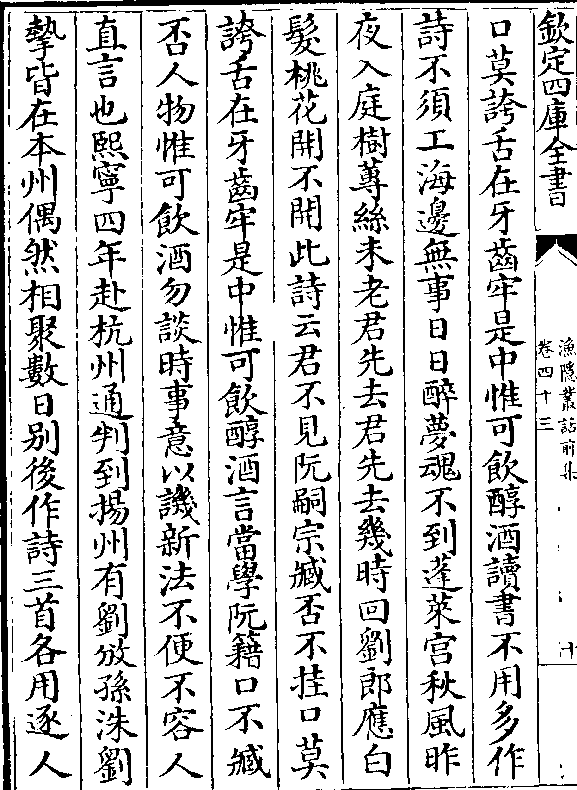 欽定四庫全書
漁隱叢話前集
卷四十三
十
口莫誇舌在牙齒牢是中惟可飲醇酒讀書不用多作
詩不須工海邊無事日日醉夢魂不到蓬萊宫秋風昨
夜入庭樹蓴絲未老君先去君先去幾時回劉郎應白
髮桃花開不開此詩云君不見阮嗣宗臧否不挂口莫
誇舌在牙齒牢是中惟可飲醇酒言當學阮籍口不臧
否人物惟可飲酒勿談時事意以譏新法不便不容人
直言也熙寧四年赴杭州通判到揚州有劉攽孫洙劉
摯皆在本州偶然相聚數日别後作詩三首各用逐人